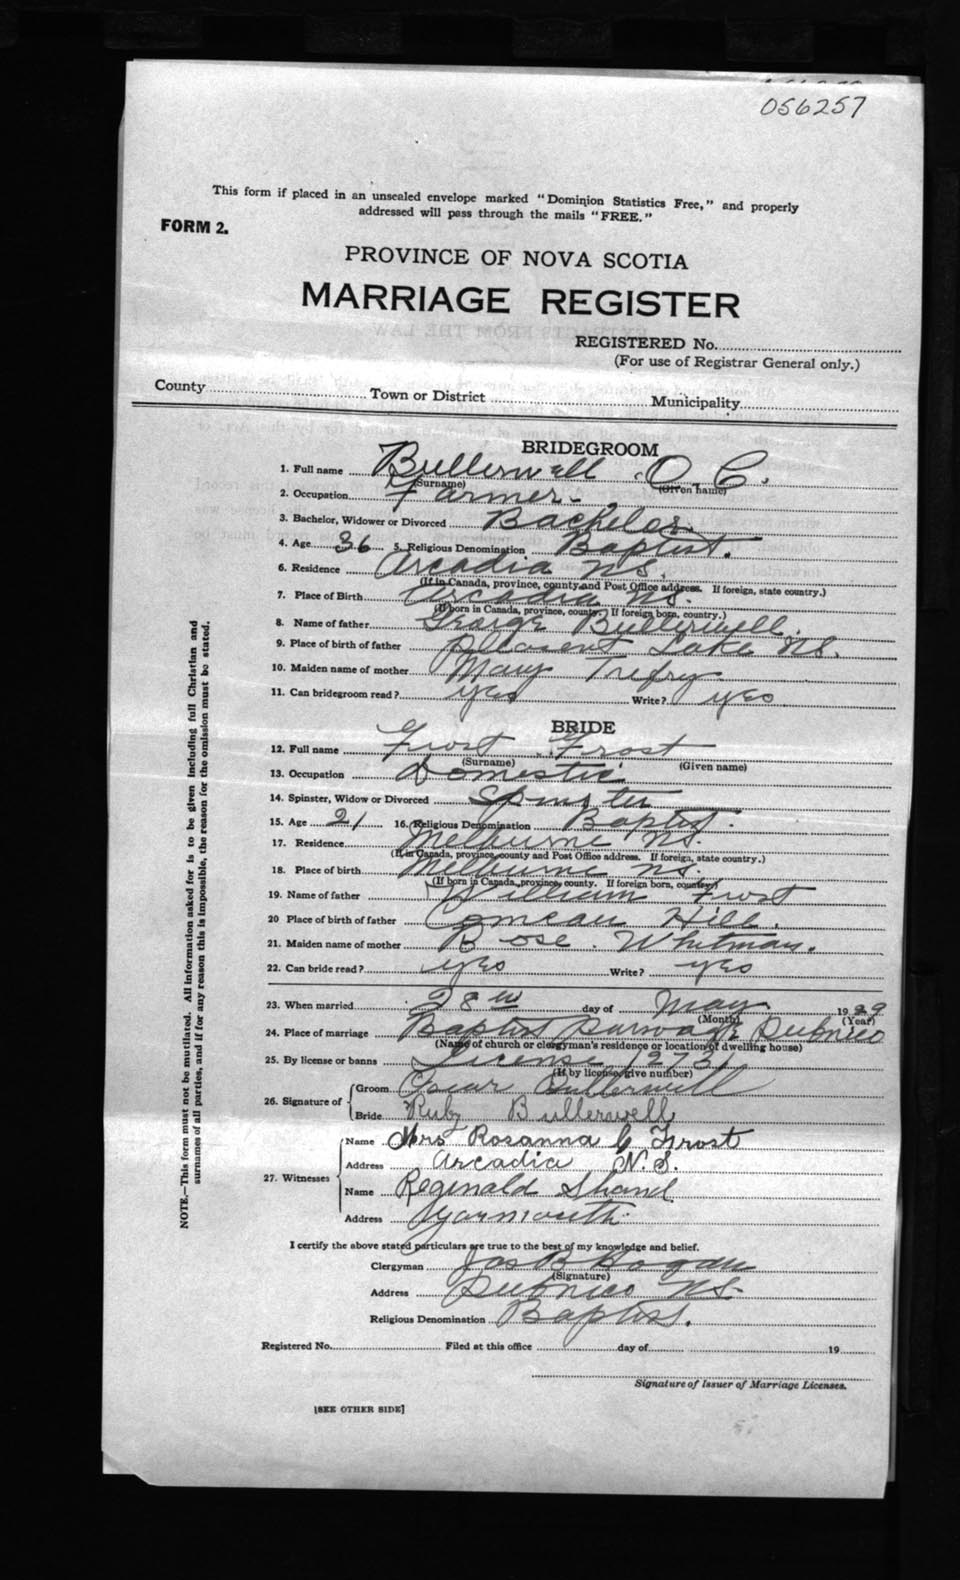 056257
This form if placed in an unsealed envelope marked "Dominion Statistics Free," and properly
addressed will pass through the mails "FREE."
FORM 2.
PROVINCE OF NOVA SCOTIA
MARRIAGE REGISTER
REGISTERED No.
(For use of Registrar General only.)
County Town or District Municipality
BRIDEGROOM
1. Full name Bullerwell O. C.
(Surname) (Given name)
2. Occupation Farmer.
3. Bachelor, Widower or Divorced Bachelor.
4. Age 36 5. Religious Denomination Baptist.
6. Residence Arcadia N.S.
(If in Canada, province, county and Post Office address. If foreign, state country.)
7. Place of Birth Arcadia N.S.
(If born in Canada, province, county. If foreign born, country.)
8. Name of father George Bullerwell.
9. Place of birth of father Pleasent Lake N.S.
10. Maiden name of mother Mary Trefry
11. Can bridegroom read? yes Write? yes
BRIDE
12. Full name Frost Frost
(Surname) (Given name)
13. Occupation Domestic
14. Spinster, Widow or Divorced Spinster
15. Age 21 16. Religious Denomination Baptist.
17. Residence Melburne N.S.
(If in Canada, province, county and Post Office address. If foreign, state country.)
18. Place of birth Melburne N.S.
(If born in Canada, province, county. If foreign born, country)
19. Name of father William Frost
20 Place of birth of father Comeau Hill.
21. Maiden name of mother Rose. Whitman.
22. Can bride read? yes Write? yes
23. When married 28th day of May 1929
(Month) (Year)
24. Place of marriage Baptist Pubnico
(Name of church or clergyman's residence or location of dwelling house)
25. By license or banns License 1273
(If by license, give number)
26. Signature of Groom Oscar Bullerwell
Bride Ruby Bullerwell
27. Witnesses Name Mrs Rosanna C Frost
Address Arcadia N.S.
Name Reginald Shand
Address Yarmouth.
I certify the above stated particulars are true to the best of my knowledge and belief.
Clergyman Jas B Hogan
(Signature)
Address Pubnico N.S.
Religious Denomination Baptist.
Registered No. Filed at this office day of 19
Signature of Issuer of Marriage Licenses.
[SEE OTHER SIDE]
NOTE.—This form must not be mutilated. All information asked for is to be given including full Christian and
surnames of all parties, and if for any reason this is impossible, the reason for the omission must be stated.